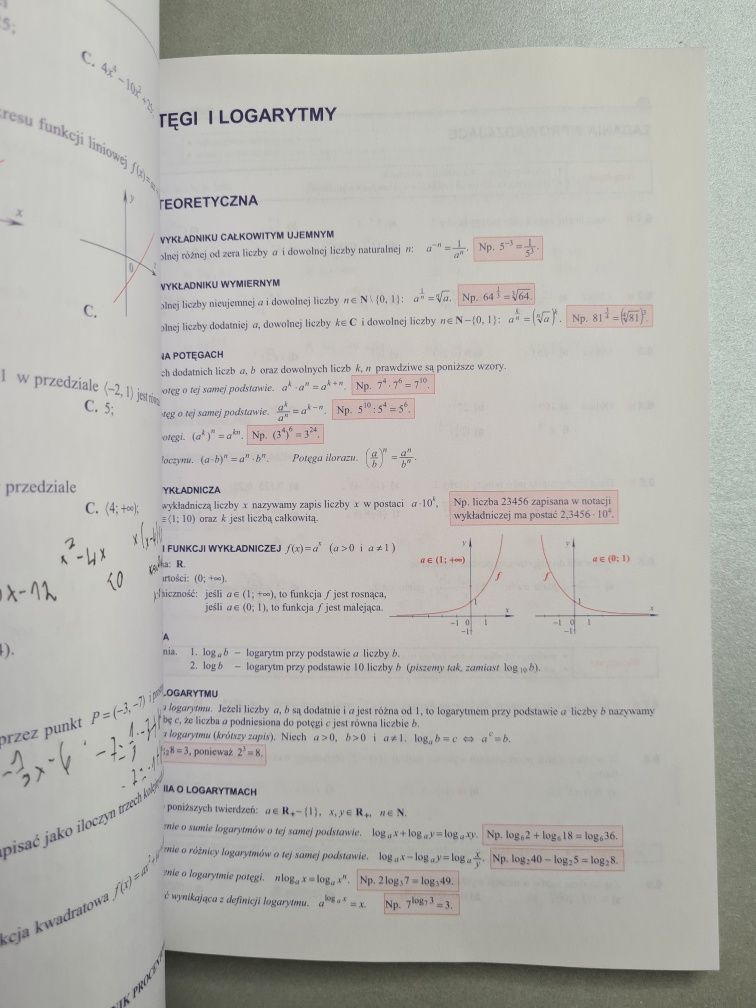 5;
C. 4x⁴ – 10x² + 25;
resu funkcji liniowej f(x) =
y
x
0
C.
1 w przedziale ⟨–2, 1) jest
C. 5;
przedziale
C. ⟨4; +∞);
x² – 4x
x – 12
przez punkt P = (–3, –7) i
apisać jako iloczyn trzech
kcja kwadratowa f(x) = ax²
TĘGI I LOGARYTMY
TEORETYCZNA
WYKŁADNIKU CAŁKOWITYM UJEMNYM
olnej różnej od zera liczby a i dowolnej liczby naturalnej n: a⁻ⁿ = 1/aⁿ. Np. 5⁻³ = 1/5³.
WYKŁADNIKU WYMIERNYM
olnej liczby nieujemnej a i dowolnej liczby n ∈ N \ {0, 1}: a^(1/n) = ⁿ√a. Np. 64^(1/3) = ³√64.
olnej liczby dodatniej a, dowolnej liczby k ∈ C i dowolnej liczby n ∈ N – {0, 1}: a^(k/n) = (ⁿ√a)^k. Np. 81^(3/4) = (⁴√81)³.
NA POTĘGACH
ch dodatnich liczb a, b oraz dowolnych liczb k, n prawdziwe są poniższe wzory.
potęg o tej samej podstawie. a^k · aⁿ = a^(k+n). Np. 7⁴ · 7⁶ = 7¹⁰.
tęg o tej samej podstawie. a^k/aⁿ = a^(k–n). Np. 5¹⁰ : 5⁴ = 5⁶.
potęgi. (a^k)ⁿ = a^(kn). Np. (3⁴)⁶ = 3²⁴.
loczynu. (a·b)ⁿ = aⁿ · bⁿ. Potęga ilorazu. (a/b)ⁿ = aⁿ/bⁿ.
YKŁADNICZA
wykładniczą liczby x nazywamy zapis liczby x w postaci a·10^k,
∈ ⟨1; 10) oraz k jest liczbą całkowitą.
Np. liczba 23456 zapisana w notacji
wykładniczej ma postać 2,3456 · 10⁴.
I FUNKCJI WYKŁADNICZEJ f(x) = a^x (a > 0 i a ≠ 1)
na: R.
artości: (0; +∞).
niczność: jeśli a ∈ (1; +∞), to funkcja f jest rosnąca,
jeśli a ∈ (0; 1), to funkcja f jest malejąca.
a ∈ (1; +∞) y f 1 –1 0 1 x –1
y a ∈ (0; 1) f 1 –1 0 1 x –1
A
nia. 1. logₐb – logarytm przy podstawie a liczby b.
2. log b – logarytm przy podstawie 10 liczby b (piszemy tak, zamiast log₁₀b).
LOGARYTMU
a logarytmu. Jeżeli liczby a, b są dodatnie i a jest różna od 1, to logarytmem przy podstawie a liczby b nazywamy
bę c, że liczba a podniesiona do potęgi c jest równa liczbie b.
a logarytmu (krótszy zapis). Niech a > 0, b > 0 i a ≠ 1. logₐb = c ⇔ a^c = b.
g₂8 = 3, ponieważ 2³ = 8.
NIA O LOGARYTMACH
poniższych twierdzeń: a ∈ R₊ – {1}, x, y ∈ R₊, n ∈ N.
enie o sumie logarytmów o tej samej podstawie. logₐx + logₐy = logₐxy. Np. log₆2 + log₆18 = log₆36.
enie o różnicy logarytmów o tej samej podstawie. logₐx – logₐy = logₐ x/y. Np. log₂40 – log₂5 = log₂8.
enie o logarytmie potęgi. n logₐx = logₐxⁿ. Np. 2log₃7 = log₃49.
ć wynikająca z definicji logarytmu. a^(logₐx) = x. Np. 7^(log₇3) = 3.